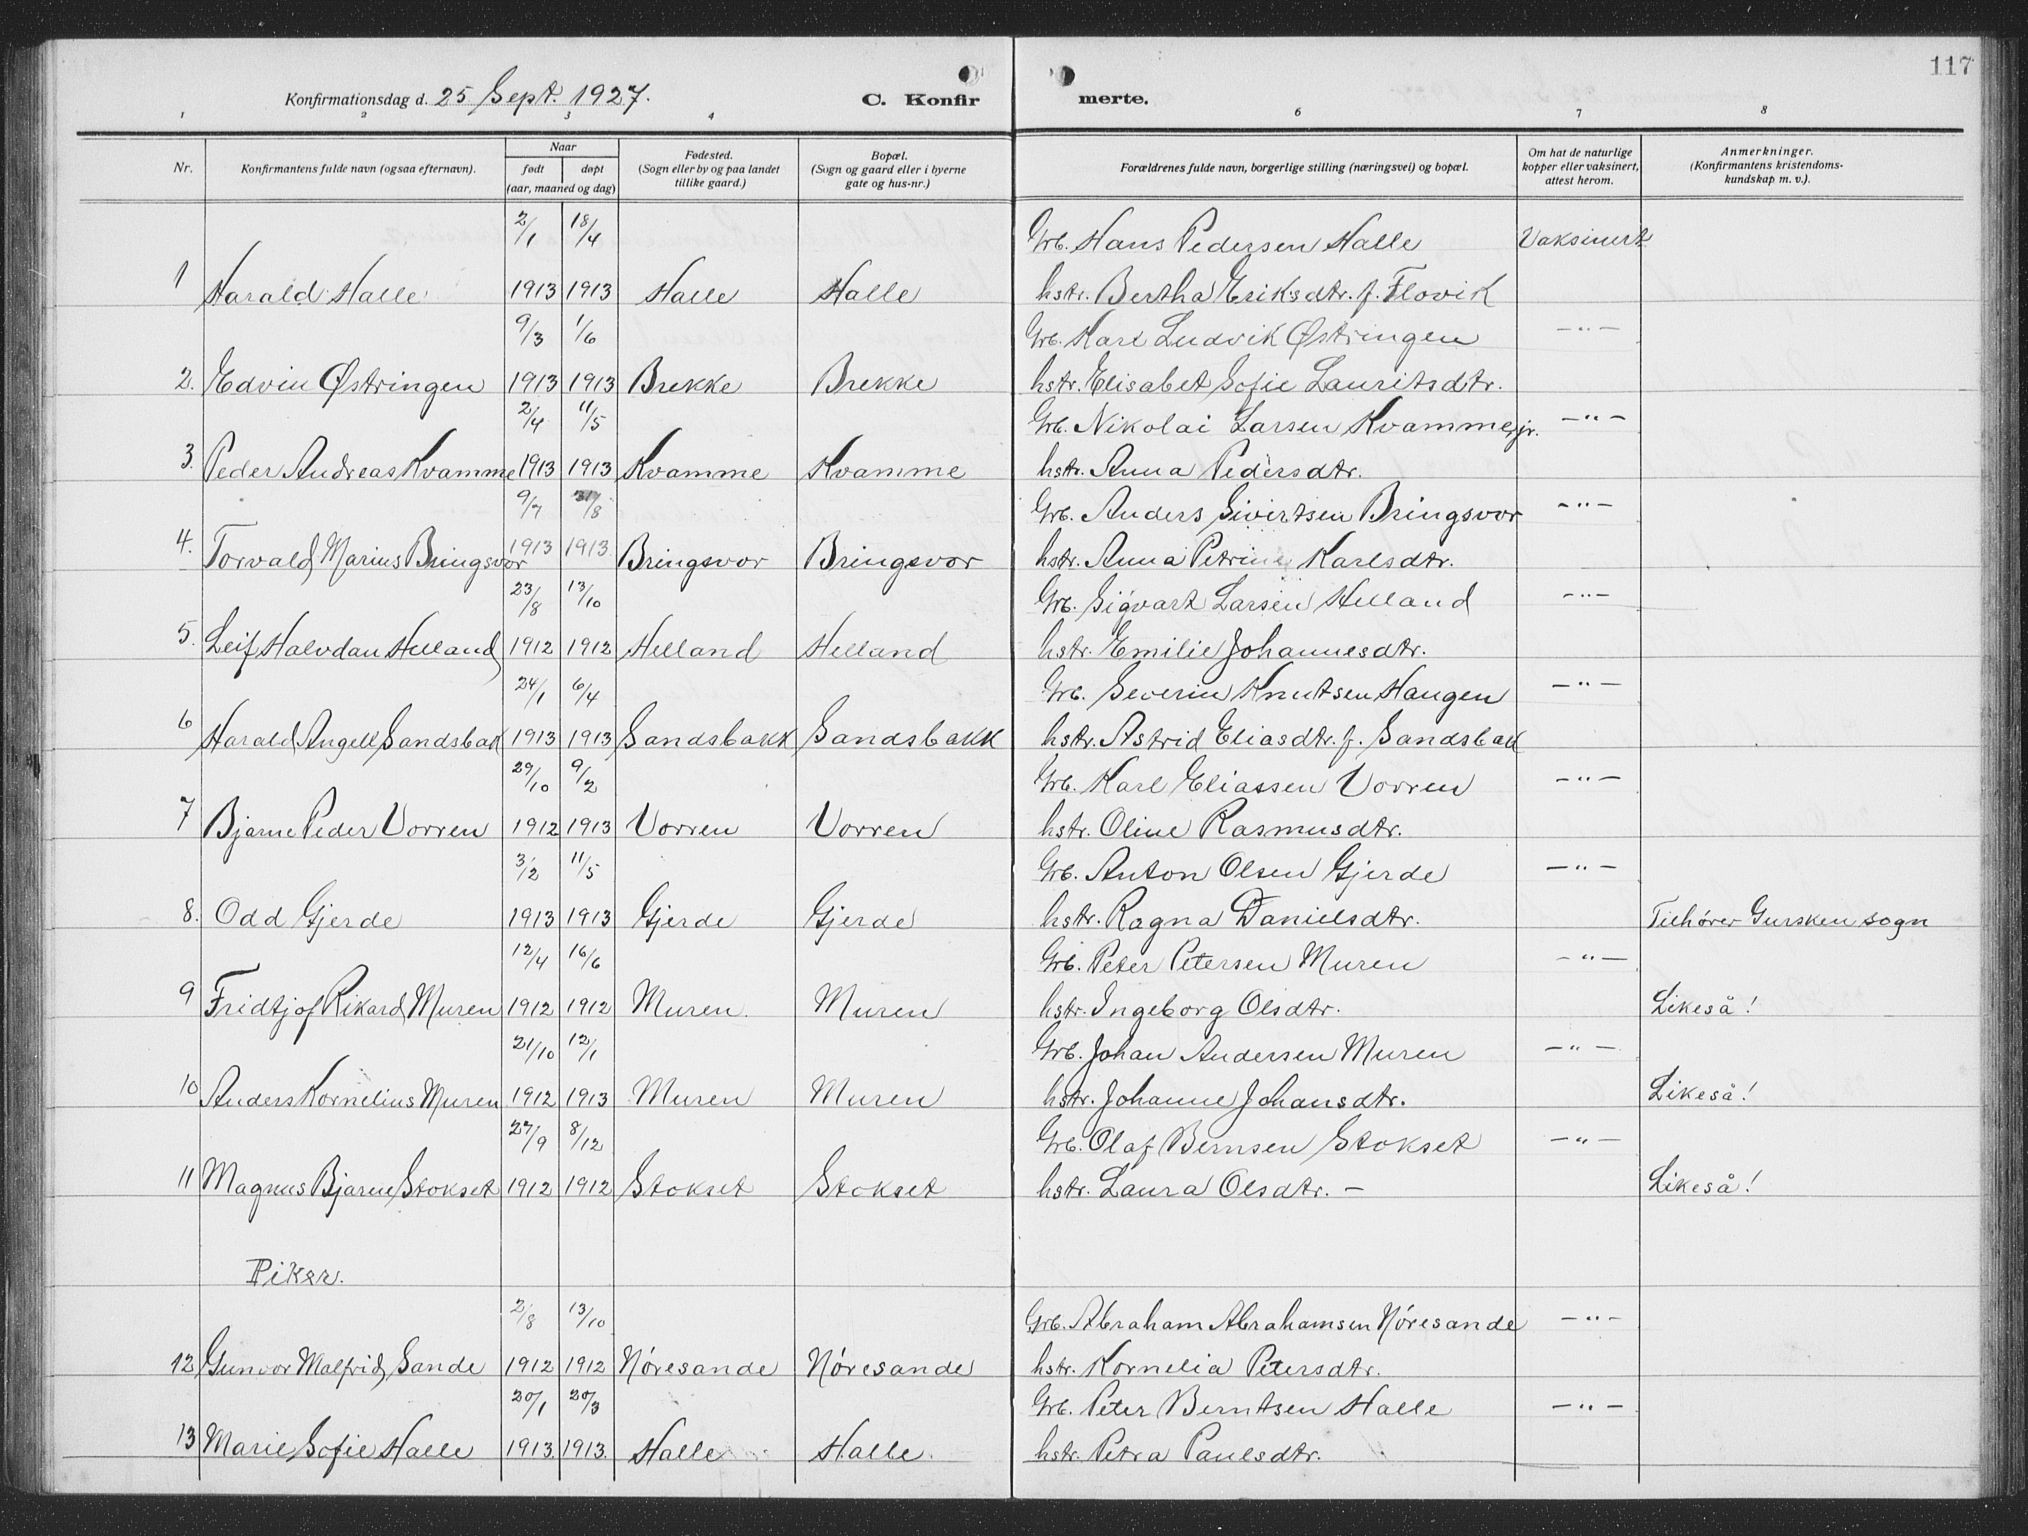 117
Konfirmationsdag d. 25 Sept. 1927.
C. Konfirmerte.
1 2 3 4 6 7 8
Nr.
Konfirmantens fulde navn (ogsaa efternavn).
Naar
født døpt
(aar, maaned og dag)
Fødested.
(Sogn eller by og paa landet
tillike gaard.)
Bopæl.
(Sogn og gaard eller i byerne
gate og hus-nr.)
Forældrenes fulde navn, borgerlige stilling (næringsvei) og bopæl.
Om hat de naturlige
kopper eller vaksinert,
attest herom.
Anmerkninger.
(Konfirmantens kristendoms-
kundskap m. v.).
2/1 18/4 Grb. Hans Pedersen Halle Vaksinert
1 Harald Halle 1913 1913 Halle Halle hstr. Bertha Eriksdtr. f. Flovik
9/3 1/6 Grb. Karl Ludvik Østringen -"-
2. Edvin Østringen 1913 1913 Brekke Brekke hstr. Elisabet Sofie Lauritsdtr.
2/4 11/5 Grb. Nikolai Larsen Kvamme jr. -"-
3. Peder Andreas Kvamme 1913 1913 Kvamme Kvamme hstr. Anna Pedersdtr.
9/7 31/8 Grb. Anders Sivertsen Bringsvor -"-
4. Torvald Marius Bringsvor 1913 1913 Bringsvor Bringsvor hstr. Anna Petrine Karlsdtr.
23/8 13/10 Grb. Sigvart Larsen Helland -"-
5. Leif Halvdan Helland 1912 1912 Helland Helland hstr. Emilie Johannesdtr.
24/1 6/4 Grb. Severin Knutsen Haugen -"-
6 Harald Angell Sandsbak 1913 1913 Sandsbakk Sandsbakk hstr. Astrid Eliasdtr. f. Sandsbak
29/10 9/2 Grb. Karl Eliassen Vorren -"-
7 Bjarne Peder Vorren 1912 1913 Vorren Vorren hstr. Oline Rasmusdtr.
3/2 11/5 Grb. Anton Olsen Gjerde -"-
8. Odd Gjerde 1913 1913 Gjerde Gjerde hstr. Ragna Danielsdtr. Tilhører Gursken sogn
12/4 16/6 Grb. Peter Petersen Muren -"-
9 Fridtjof Rikard Muren 1912 1912 Muren. Muren hstr. Ingeborg Olsdtr. Likeså!
21/10 12/1 Grb. Johan Andersen Muren -"-
10 Anders Kornelius Muren 1912 1913 Muren Muren hstr. Johanne Johansdtr. Likeså!
27/9 8/12 Grb. Olaf Bernsen Stokset -"-
11 Magnus Bjarne Stokset 1912 1912 Stokset Stokset hstr. Laura Olsdtr. - Likeså!
Piker.
2/8 13/10 Grb. Abraham Abrahamsen Nøresande -"-
12 Gunvor Malfrid Sande 1912 1912 Nøresande Nøresande hstr. Kornelia Petersdtr.
20/1 20/3 Grb. Peter Berntsen Halle -"-
13 Marie Sofie Halle 1913. 1913. Halle Halle. hstr. Petra Paulsdtr.